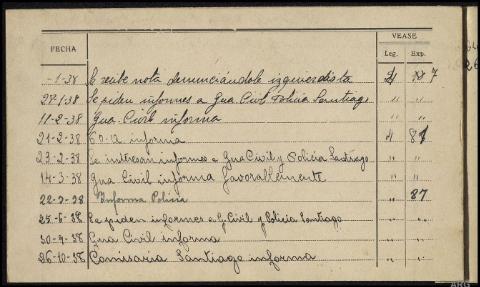 VEASE
FECHA Leg. Exp.
-1-38 Se recibe nota denunciándole izquierdista 4 7
27-1-38 Se piden informes a Gua Civil Policia Santiago " "
11-2-38 Gua. Civil informa " "
21-2-38 informa 4 87
23-2-38 Se interesan informes e Gua Civil y Policia Santiago " "
14-3-38 Gua Civil informa favorablemente " "
22-3-38 Informa Policia " 87
25-6-38 Se piden informes a G. Civil y Policia Santiago " "
30-9-38 Gua Civil informa " "
26-10-38 Comisaria Santiago informa " "